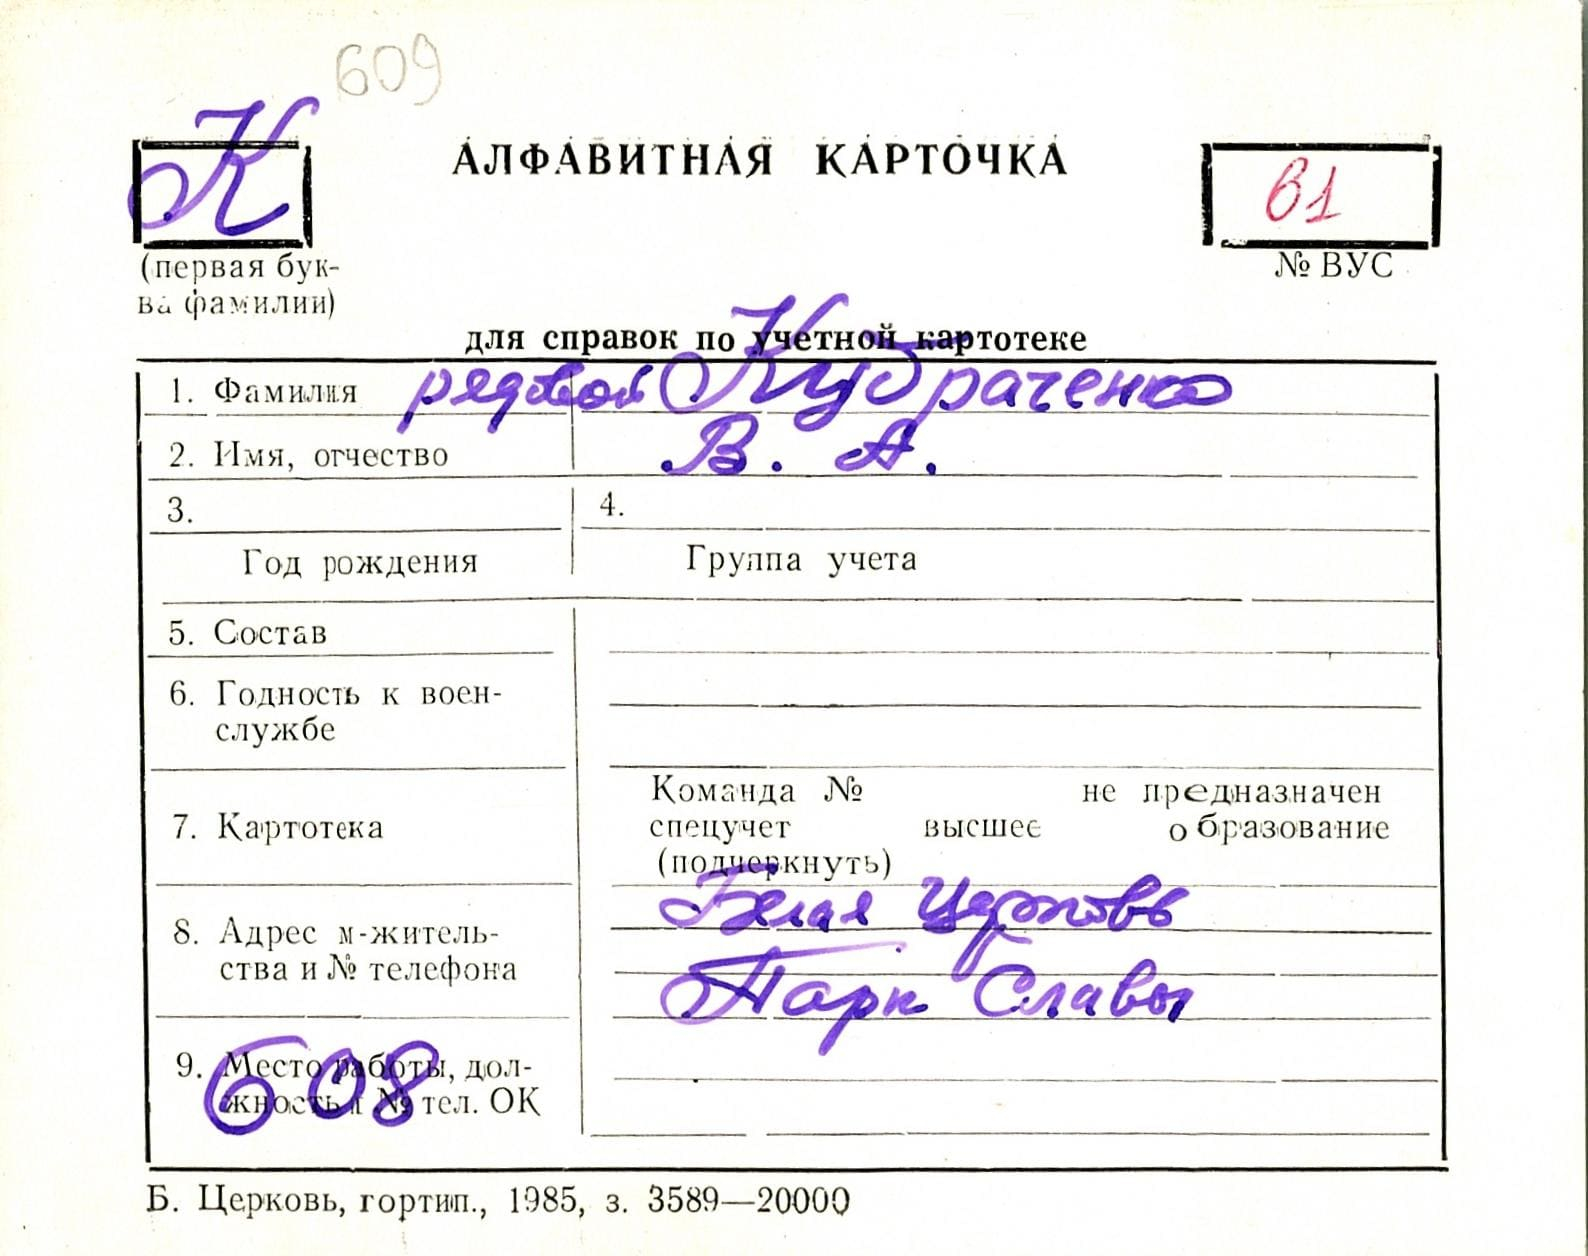 609
К
АЛФАВИТНАЯ КАРТОЧКА
В1
(первая бук-
ва фамилии)
№ ВУС
для справок по учетной картотеке
1. Фамилия рядовой Кудраченко
2. Имя, отчество В. А.
3. 4.
Год рождения Группа учета
5. Состав
6. Годность к воен-
службе
Команда № не предназначен
7. Картотека спецучет высшее образование
(подчеркнуть)
Белая Церковь
8. Адрес м-житель-
ства и № телефона
Парк Славы
9. Место работы, дол-
жность и № тел. ОК
608
Б. Церковь, гортип., 1985, з. 3589—20000